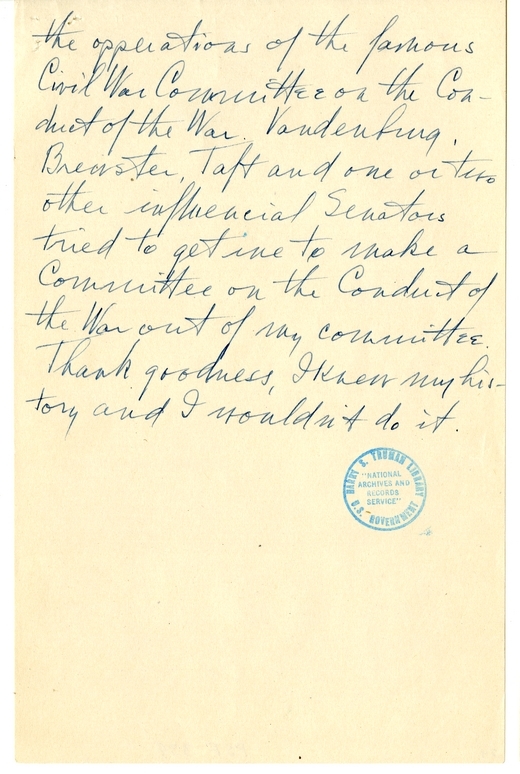 the opperations of the famous
Civil War Committee on the Con-
duct of the War. Vandenburg,
Brewster, Taft and one or two
other influencial Senators
tried to get me to make a
Committee on the Conduct of
the War out of my committee.
Thank goodness, I knew my his-
tory and I wouldn't do it.
HARRY S. TRUMAN LIBRARY
"NATIONAL
ARCHIVES AND
RECORDS
SERVICE"
U.S. GOVERNMENT